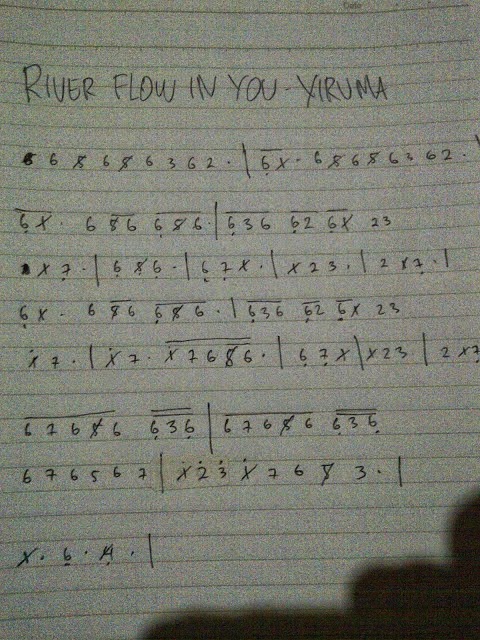 RIVER FLOW IN YOU - YIRUMA
6 6 5̸ 6 5̸ 6 3 6 2 . | 6 1̸ . 6 5̸ 6 5̸ 6 3 6 2 . |
6 1̸ . 6 5̸ 6 6 5̸ 6 . | 6 3 6 6 2 6 1̸ 2 3
1̸ 7 . | 6 5̸ 6 . | 6 7 1̸ . | 1̸ 2 3 . | 2 1̸ 7 . |
6 1̸ . 6 5̸ 6 6 5̸ 6 . | 6 3 6 6 2 6 1̸ 2 3
1̸ 7 . | 1̸ 7 . 1̸ 7 6 5̸ 6 . | 6 7 1̸ | 1̸ 2 3 | 2 1̸ 7
6 7 6 5̸ 6 6 3 6 | 6 7 6 5̸ 6 6 3 6
6 7 6 5 6 7 | 1̸ 2 3 1̸ 7 6 5̸ 3 . |
1̸ . 6 . 4̸ . |